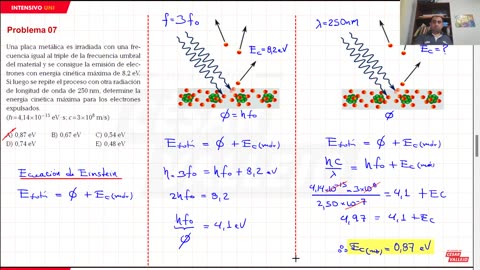 INTENSIVO UNI
Problema 07
Una placa metálica es irradiada con una fre-
cuencia igual al triple de la frecuencia umbral
del material y se consigue la emisión de elec-
trones con energía cinética máxima de 8,2 eV.
Si luego se repite el proceso con otra radiación
de longitud de onda de 250 nm, determine la
energía cinética máxima para los electrones
expulsados.
(h=4,14×10⁻¹⁵ eV·s; c=3×10⁸ m/s)
A) 0,87 eV B) 0,67 eV C) 0,54 eV
D) 0,74 eV E) 0,48 eV
Ecuación de Einstein
Efotón = Ø + Ec(máx)
f = 3f₀
Ec = 8,2 eV
Ø = hf₀
Efotón = Ø + Ec(máx)
h. 3f₀ = hf₀ + 8,2 eV
2hf₀ = 8,2
hf₀ = 4,1 eV
Ø
λ = 250nm
Ec = ?
Efotón = Ø + Ec(máx)
hc/λ = hf₀ + Ec(máx)
4,14×10⁻¹⁵×3×10⁸/2,50×10⁻⁷ = 4,1 + Ec
4,97 = 4,1 + Ec
∴ Ec(máx) = 0,87 eV
CÉSAR
VALLEJO